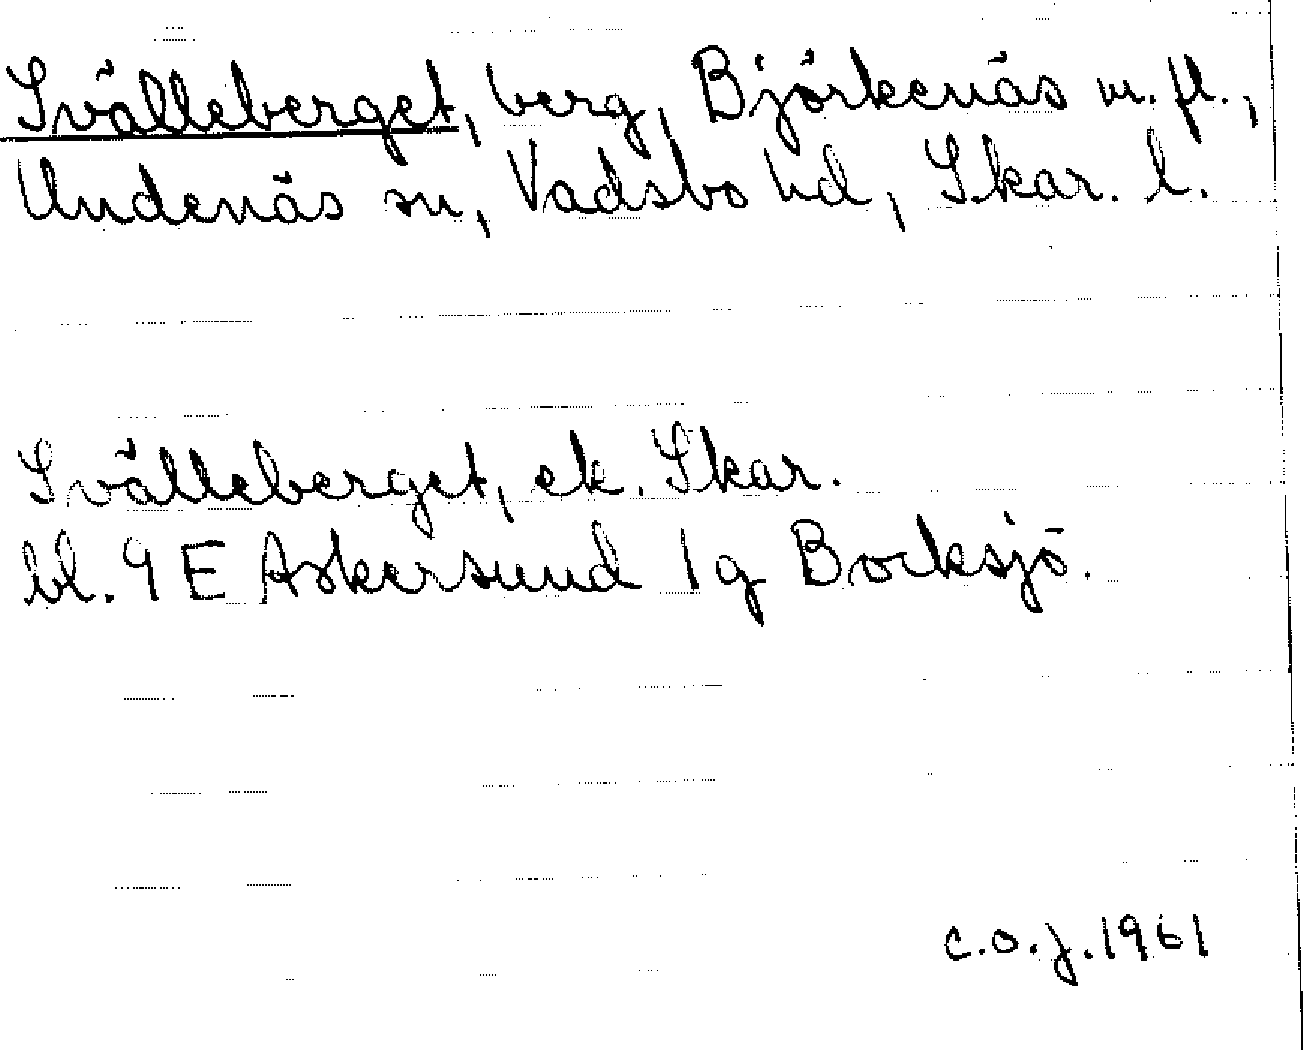 Svälleberget, berg, Björkenäs m. fl.,
Undenäs sn, Vadsbo hd, Skar. l.
Svälleberget, ek. Skar.
bl. 9 E Askersund 1 g Bocksjö.
c.o.j. 1961